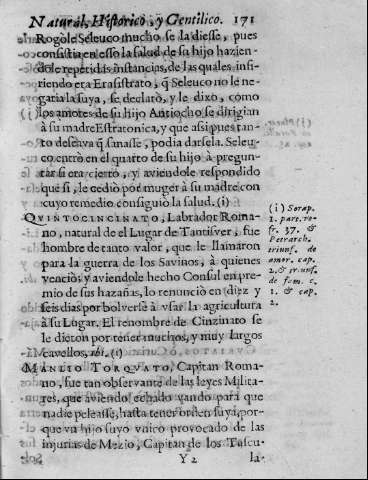 Natural, Historico, y Gentilico. 171
Rogòle Seleuco mucho se la diesse, pues
consistia en esso la salud de su hijo hazien-
dole repetidas instancias, de las quales infi-
riendo era Erasistrato, q̃ Seleuco no le ne-
garia la suya, se declarò, y le dixo, como
los amores de su hijo Antiocho se dirigian
à su madre Estratonica, y que assi pues tan-
to deseava q̃ sanasse, podia darsela. Seleu-
co entrò en el quarto de su hijo à pregun-
tar si era cierto, y aviendole respondido
què si, le cediò por muger à su madre con
cuyo remedio consiguiò la salud. (i)
QUINTOCINCINATO, Labrador Roma-
no, natural de el Lugar de Tantisver, fue
hombre de tanto valor, que le llamaron
para la guerra de los Savinos, à quienes
venciò; y aviendole hecho Consul en pre-
mio de sus hazañas, lo renunciò en diez y
seis dias por bolverse à vsar la agricultura
à su Lugar. El renombre de Cinzinato se
le dieron por tener muchos, y muy largos
cavellos, ibi. (i)
MANLIO TORQUATO, Capitan Roma-
no, fue tan observante de las leyes Milita-
res, que aviendo echado vando para que
nadie peleasse, hasta tener orden suya, por-
que vn hijo suyo vnico provocado de las
injurias de Mezio, Capitan de los Tuscu-
Y 2 la-
(i) Sorap.
1. part. ve-
fr. 37. &
Petrarch.
triunf. de
amor. cap.
2. & triunf.
de fam. c.
1. & cap.
2.